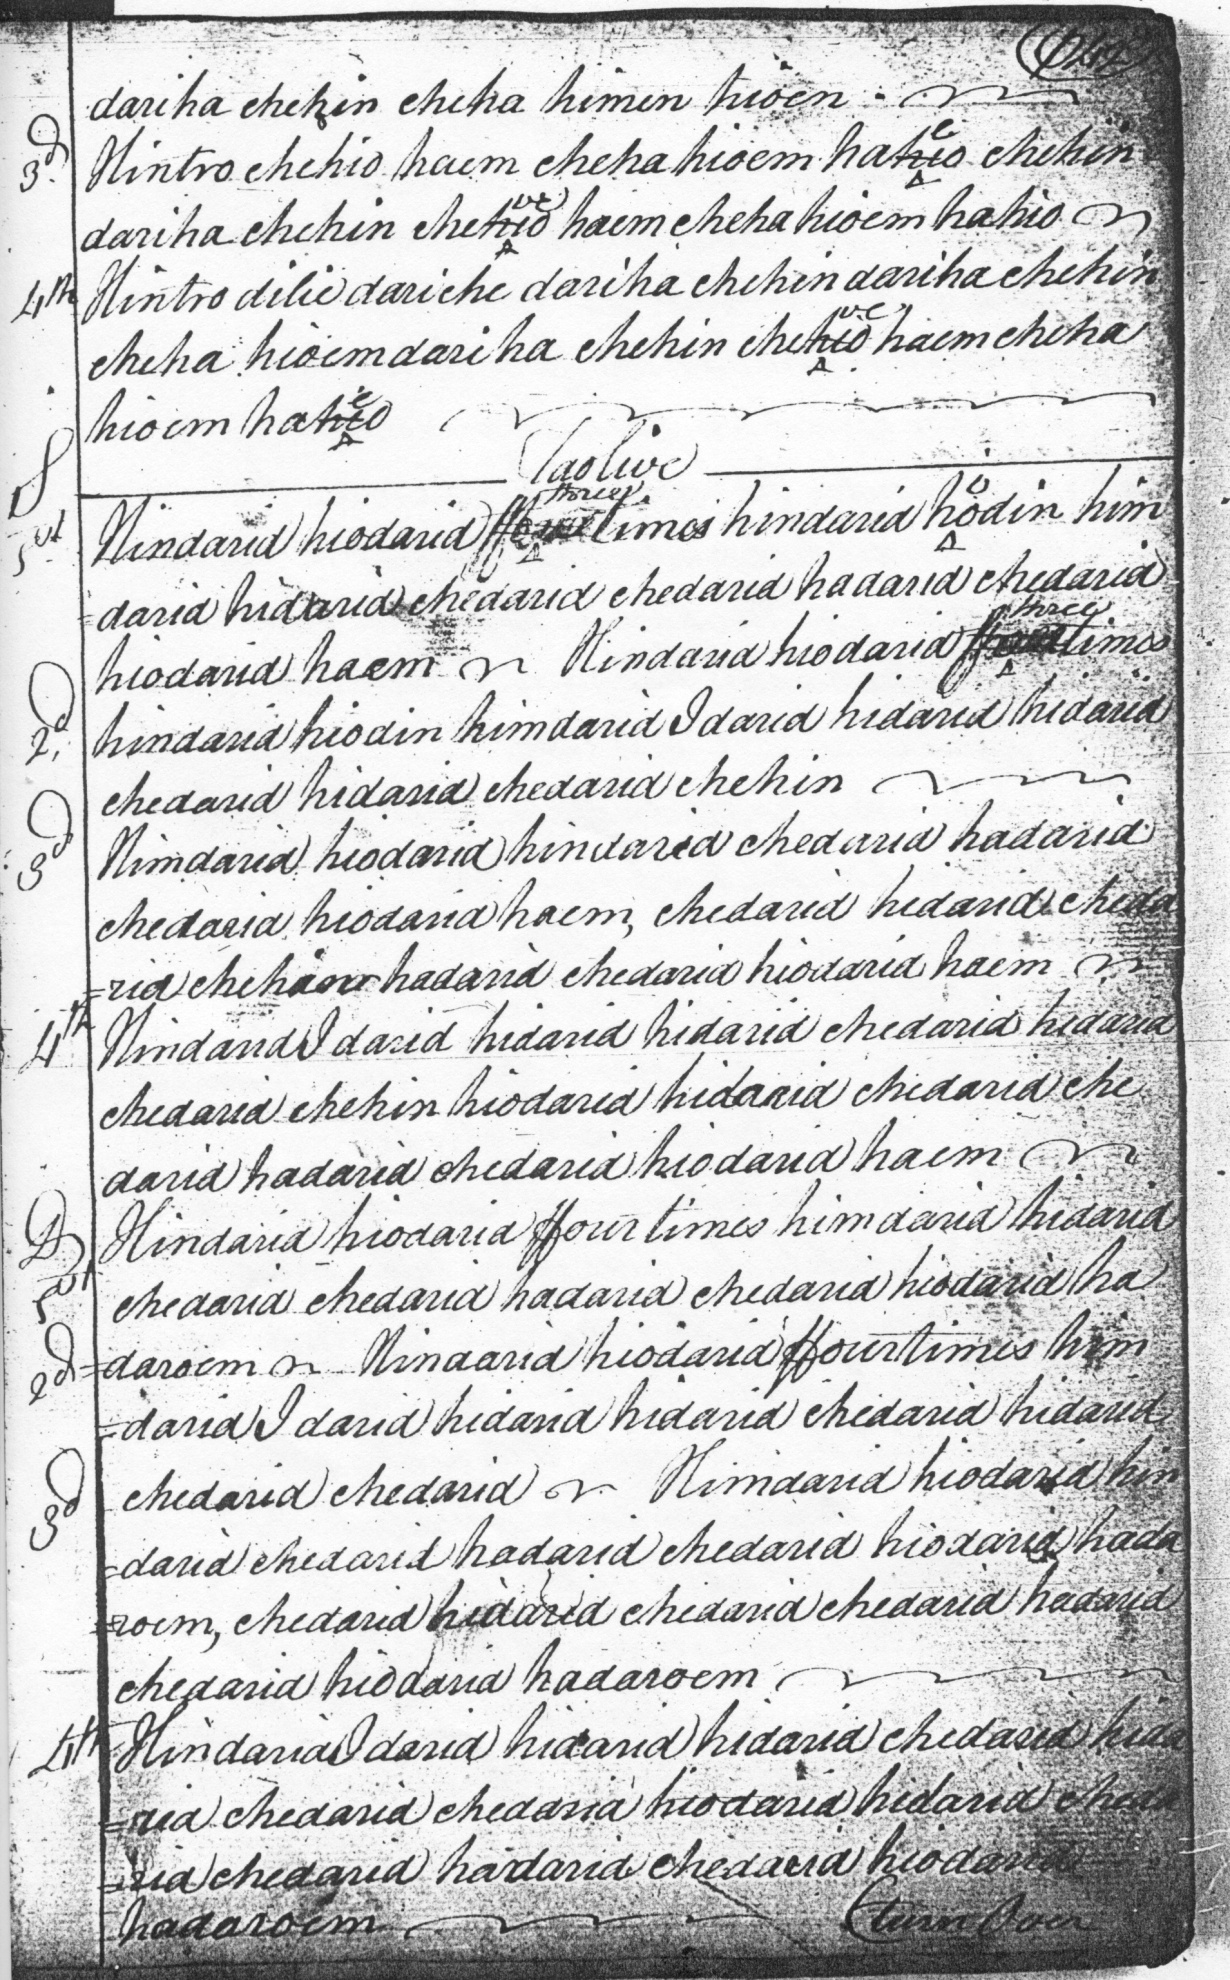 (249)
dariha chehin cheha himen hioen
3d. Hintro chehio haem cheha hioem hahio e chehin
dariha chehin chehio ve haem cheha hioem hahio
4th Hintro dilie dariche dariha chehin dariha chehin
cheha hioem dariha chehin chehio ve haem cheha
hioem hahio e
Taolive
1st Hindarid hiodarid ffour three times hindarid hodin him
=darid hidarid chedarid chedarid hadarid chedarid
hiodarid haem Hindarid hiodarid ffour three times
2d, hindarid hiodin himdarid I darid hidarid hidarid
chedarid hidarid chedarid chehin
3d Himdarid hiodarid hindarid chedarid hadarid
chedarid hiodarid haem, chedarid hidarid cheda
=rid chehin hadarid chedarid hiodarid haem
4th Hindarid I darid hidarid hidarid chedarid hidarid
chedarid chehin hiodarid hidarid chedarid che
darid hadarid chedarid hiodarid haem
D 1st Hindarid hiodarid ffour times himdarid hidarid
chedarid chedarid hadarid chedarid hiodarid ha
2d =daroem Hindarid hiodarid ffour times him
=darid I darid hidarid hidarid chedarid hidarid
chedarid chedarid Himdarid hiodarid hin
3d =darid chedarid hadarid chedarid hiodarid hada
=roem, chedarid hidarid chedarid chedarid hadarid
chedarid hiodarid hadaroem
4th Hindarid I darid hidarid hidarid chedarid hida
=rid chedarid chedarid hiodarid hidarid cheda
=rid chedarid hadarid chedarid hiodarid
hadaroem turn Over